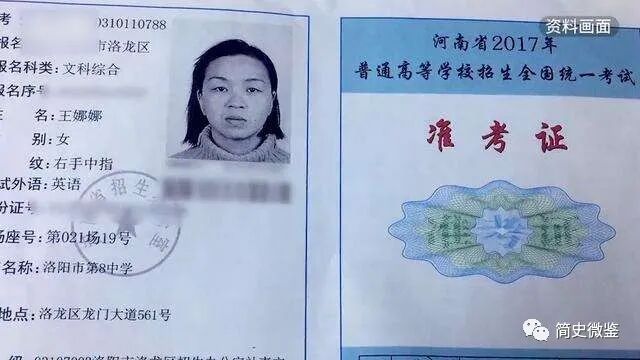 资料画面
考
0310110788
报名
市洛龙区
报名科类：文科综合
报名序号
名：王娜娜
别：女
纹：右手中指
试外语：英语
份证号
场座号：第021场19号
名称：洛阳市第8中学
地点：洛龙区龙门大道561号
省招生
河南省2017年
普通高等学校招生全国统一考试
准考证
简史微鉴